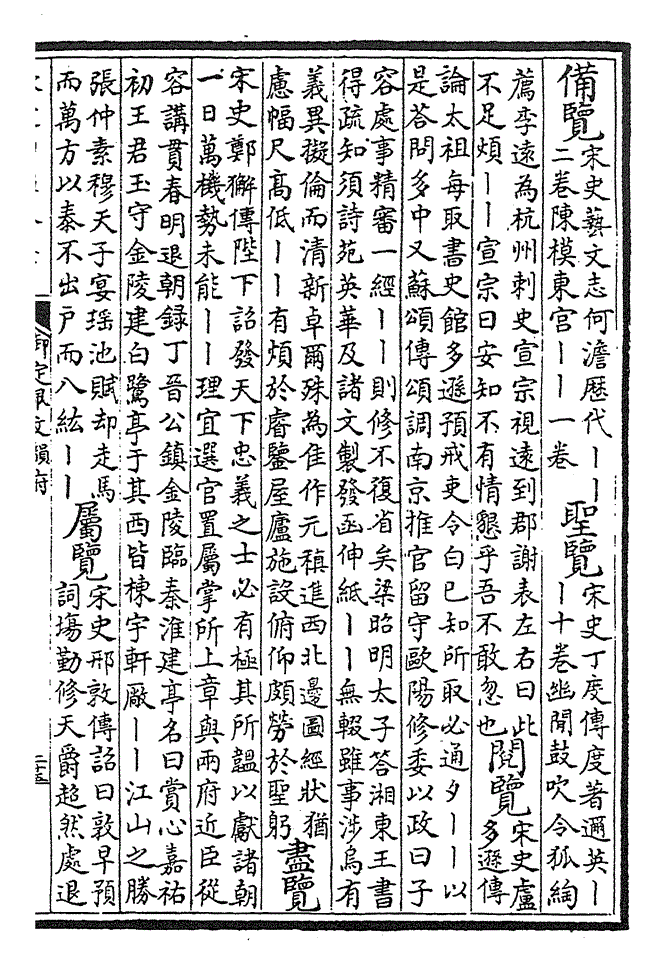 備覽
宋史藝文志何澹歷代丨丨
二卷陳模東宮丨丨一卷
聖覽
宋史丁度傳度著邇英丨
丨十卷幽聞鼓吹令狐綯
薦李遠為杭州刺史宣宗視遠到郡謝表左右曰此
不足煩丨丨宣宗曰安知不有情懇乎吾不敢忽也
閱覽
宋史盧
多遜傳
論太祖每取書史館多遜預戒吏令白已知所取必通夕丨丨以
是答問多中又蘇頌傳頌調南京推官留守歐陽修委以政曰子
容處事精審一經丨丨則修不復省矣梁昭明太子答湘東王書
得疏知須詩苑英華及諸文製發函伸紙丨丨無輟雖事涉烏有
義異擬倫而清新卓爾殊為佳作元稹進西北邊圖經狀猶
慮幅尺髙低丨丨有煩於睿鑒屋廬施設俯仰頗勞於聖躬
盡覽
宋史鄭獬傳陛下詔發天下忠義之士必有極其所韞以獻諸朝
一日萬機勢未能丨丨理宜選官置屬掌所上章與兩府近臣從
容講貫春明退朝録丁晉公鎮金陵臨秦淮建亭名曰賞心嘉祐
初王君玉守金陵建白鷺亭于其西皆棟宇軒敞丨丨江山之勝
張仲素穆天子宴瑶池賦却走馬
而萬方以泰不出户而八紘丨丨
屬覽
宋史邢敦傳詔曰敦早預
詞塲勤修天爵超然處退
御定佩文韻府